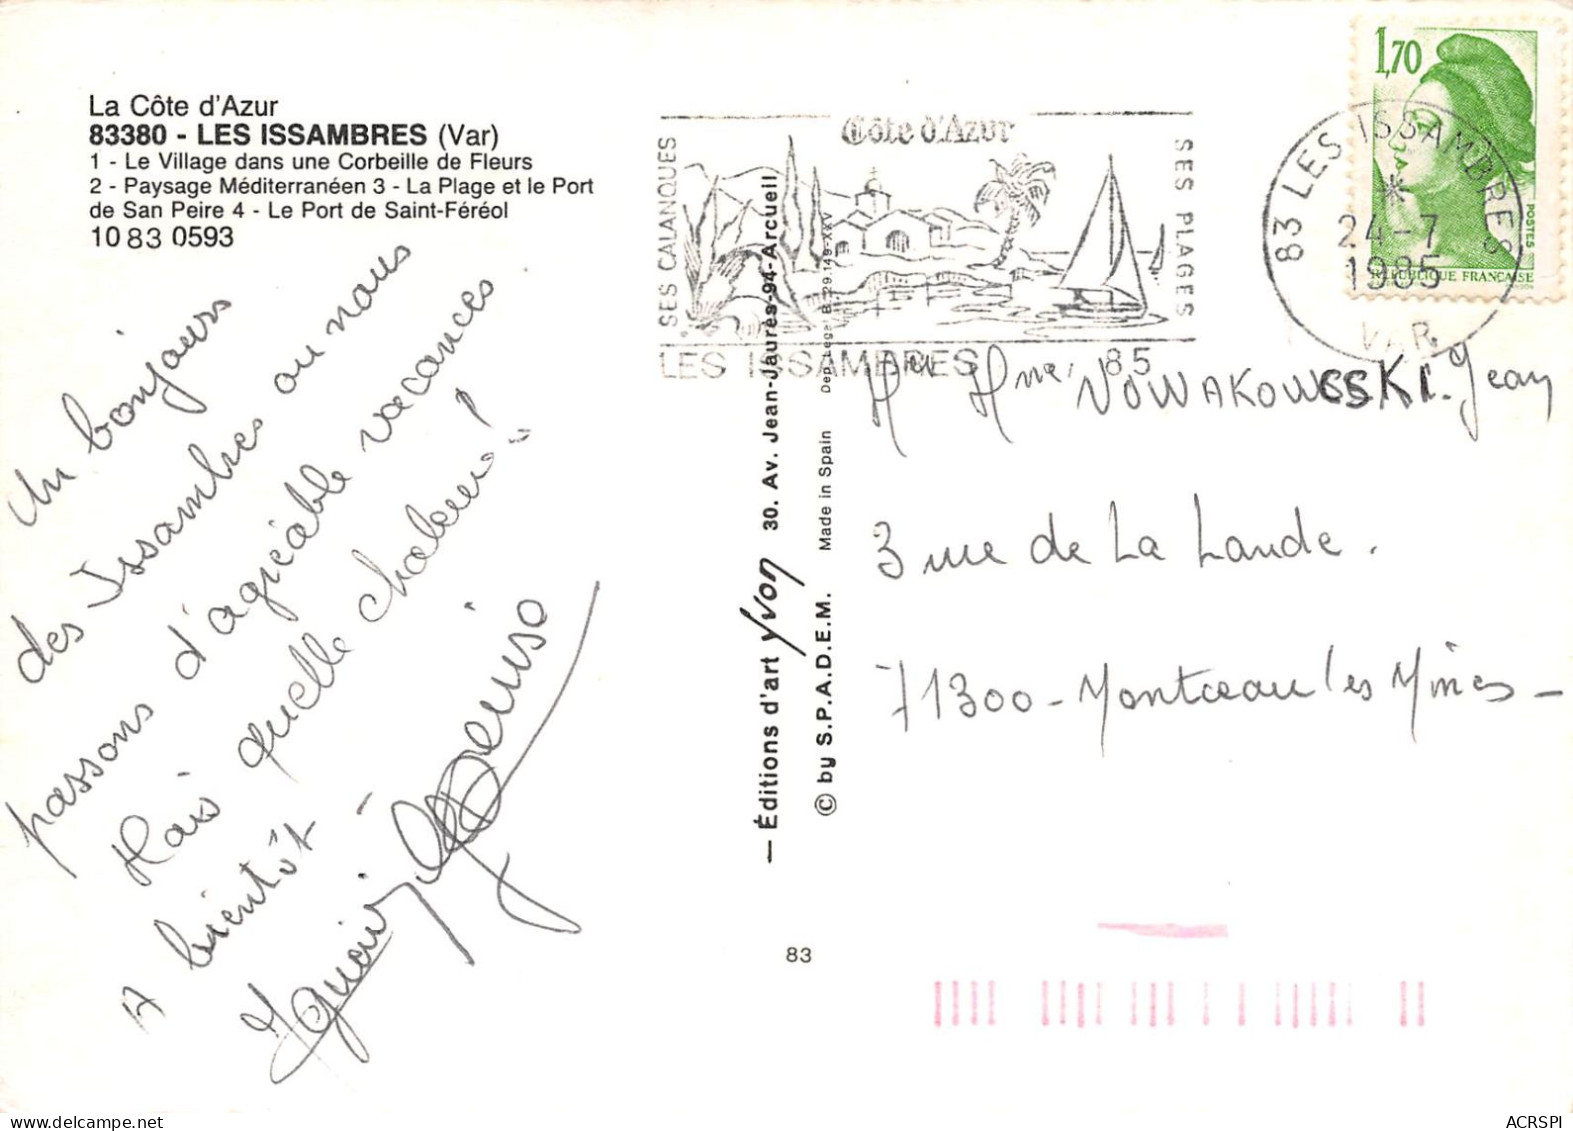 La Côte d'Azur
83380 - LES ISSAMBRES (Var)
1 - Le Village dans une Corbeille de Fleurs
2 - Paysage Méditerranéen 3 - La Plage et le Port
de San Peire 4 - Le Port de Saint-Féréol
10 83 0593
Un bonjours
des Issambres ou nous
passons d'agréable vacances
Mais quelle chaleur !
A bientôt -
— Éditions d'art Yvon 30. Av. Jean-Jaurès-94-Arcueil
© by S.P.A.D.E.M. Made in Spain Dep. Legal B. 29.149-XXV
83
SES CALANQUES
Côte d'Azur
SES PLAGES
LES ISSAMBRES 85
83 LES ISSAMBRES
*
24-7
1985
VAR
1,70
POSTES
REPUBLIQUE FRANÇAISE
Mr Mme NOWAKOWSKI Jean
3 rue de La Lande.
71300 - Montceau les Mines -
ACRSPI